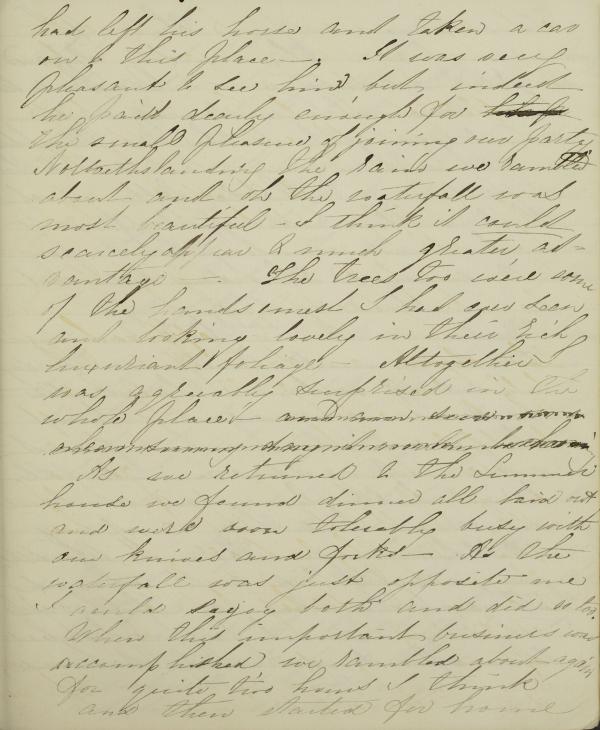 had left his horse and taken a car
on to this place —. It was very
pleasant to see him but indeed
he paid dearly enough for
the small pleasure of joining our party
Notwithstanding the rain we rambled
about and oh the waterfall was
most beautiful — I think it could
scarcely appear to much greater ad=
vantage —. The trees too were some
of the handsomest I had ever seen
and looking lovely in their rich
luxuriant foliage — Altogether I
was agreeably surprised in the
whole place
As we returned to the Summer
house we found dinner all laid out
and were soon tolerably busy with
our knives and forks — As the
waterfall was just opposite me
I could enjoy both and did so too.
When this important business was
accomplished we rambled about again
for quite two hours I think
and then started for home